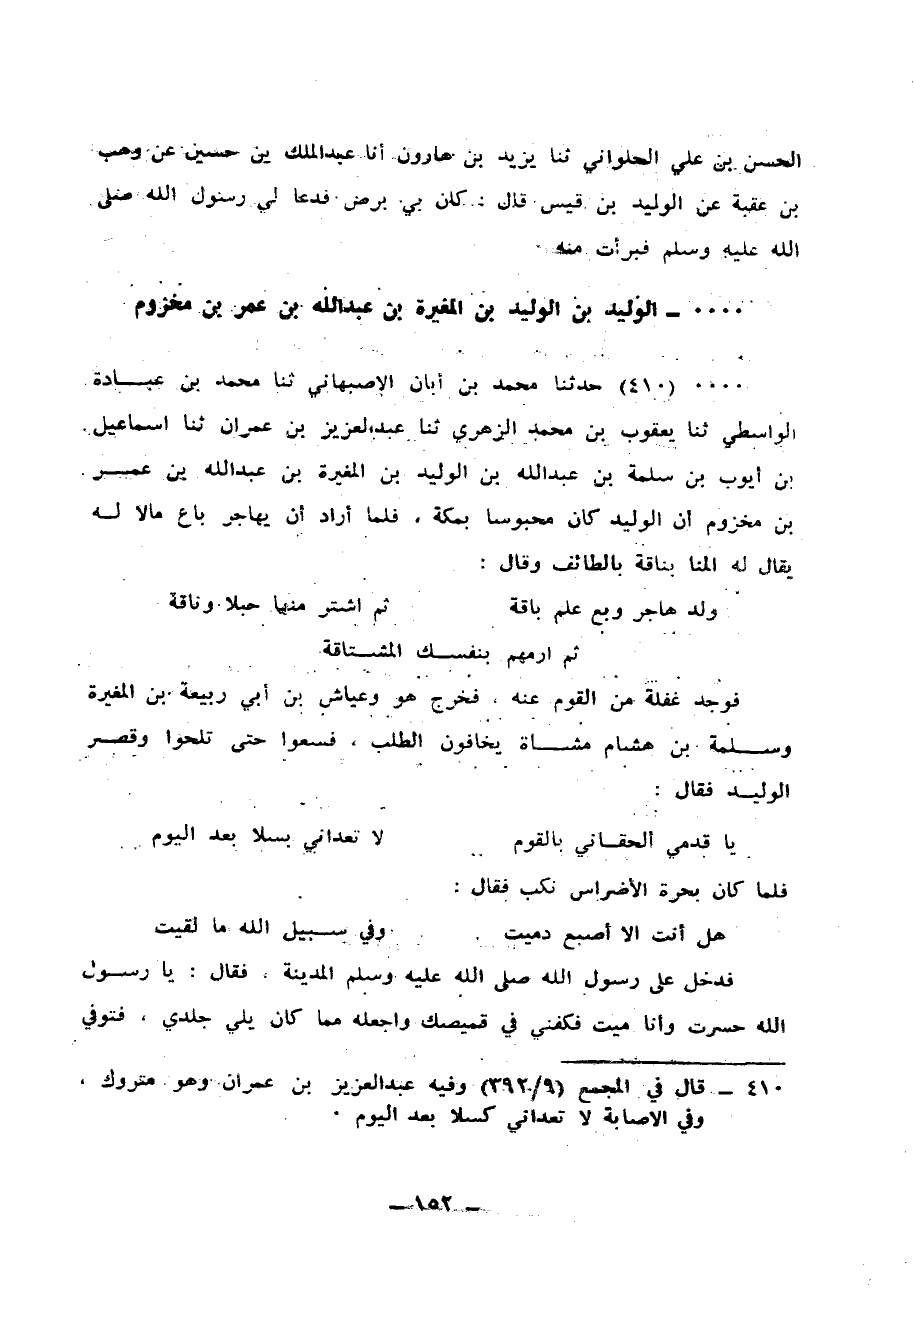 الحسن بن علي الحلواني ثنا يزيد بن هارون أنا عبدالملك بن حسين عن وهب
بن عقبة عن الوليد بن قيس قال : كان بي برص فدعا لي رسول الله صلى
الله عليه وسلم فبرأت منه
٠٠٠٠ ـ الوليد بن الوليد بن المغيرة بن عبدالله بن عمر بن مخزوم
٠٠٠٠ (٤١٠) حدثنا محمد بن أبان الاصبهاني ثنا محمد بن عبادة
الواسطي ثنا يعقوب بن محمد الزهري ثنا عبدالعزيز بن عمران ثنا اسماعيل
بن أيوب بن سلمة بن عبدالله بن الوليد بن المغيرة بن عبدالله بن عمر
بن مخزوم أن الوليد كان محبوسا بمكة ، فلما أراد أن يهاجر باع مالا له
يقال له المنا بناقة بالطائف وقال :
ولد هاجر وبع علم باقة ثم اشتر منها حبلا وناقة
ثم ارمهم بنفسك المشتاقة
فوجد غفلة من القوم عنه ، فخرج هو وعياش بن أبي ربيعة بن المغيرة
وسلمة بن هشام مشاة يخافون الطلب ، فسعوا حتى تلحوا وقصر
الوليد فقال :
يا قدمي ألحقاني بالقوم لا تعداني بسلا بعد اليوم
فلما كان بحرة الأضراس نكب فقال :
هل أنت الا أصبع دميت وفي سبيل الله ما لقيت
فدخل على رسول الله صلى الله عليه وسلم المدينة ، فقال : يا رسول
الله حسرت وأنا ميت فكفني في قميصك واجعله مما كان يلي جلدي ، فتوفي
٤١٠ ـ قال في المجمع (٣٩٢/٩) وفيه عبدالعزيز بن عمران وهو متروك ،
وفي الاصابة لا تعداني كسلا بعد اليوم ٠
ـ ١٥٢ ـ